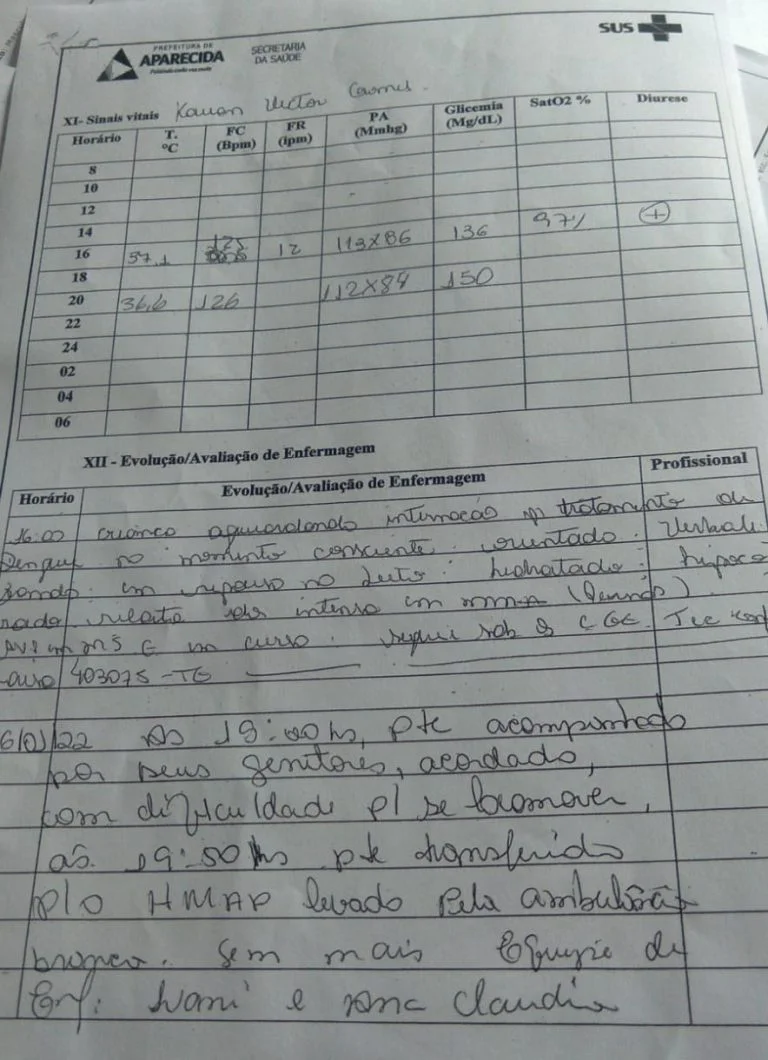 PREFEITURA DE
APARECIDA
SECRETARIA
DA SAÚDE
SUS
XI- Sinais vitais Kauan Victor
Horário T. °C FC (Bpm) FR (ipm) PA (Mmhg) Glicemia (Mg/dL) SatO2 % Diurese
8
10
12
14
16 37,1 123 12 113x86 136 97% +
18
20 36,6 126 112x84 150
22
24
02
04
06
XII - Evolução/Avaliação de Enfermagem
Horário Evolução/Avaliação de Enfermagem Profissional
16:00 criança aguardando internação p/ tratamento de
Dengue no momento consciente. orientado. Verbali-
zando. em repouso no leito. hidratado. hipoco-
rado relata dor intensa em
em curso. segue sob Tec
403075-TE
6/01/22 As 19:00hs, pte acompanhado
por seus genitores, acordado,
com dificuldade p/ se locomover,
ás 19:50hs pte transferido
p/o HMAP levado pela ambulância
branca. Sem mais Equipe de
Enf: Ivani e Ana Claudia